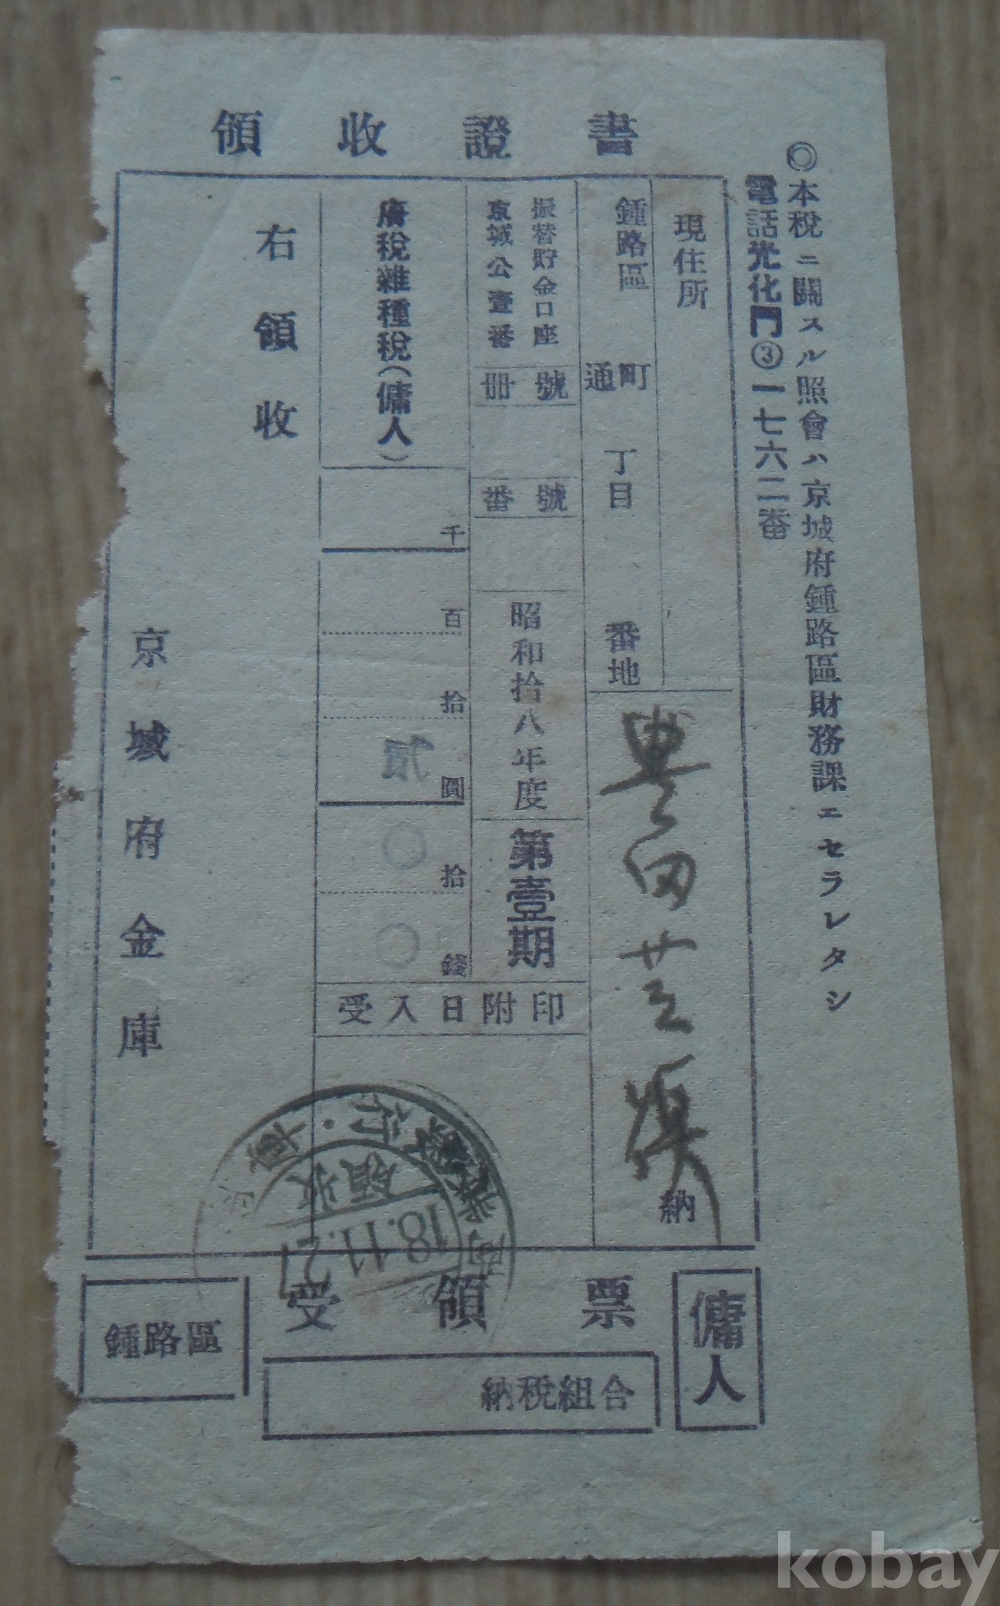 領收證書
◎本税ニ關スル照會ハ京城府鍾路區財務課エセラレタシ
電話光化門③一七六二番
現住所
鍾路區 町通 丁目 番地
豊田芝
納
振替貯金口座
京城公壹番
冊號
番號
昭和拾八年度
第壹期
府税雜種税(傭人)
千
百
拾
圓
拾
錢
貳
〇
〇
受入日附印
右領收
京城府金庫
銀行
領收
18.11.27
受領票
傭人
鍾路區
納税組合
kobay